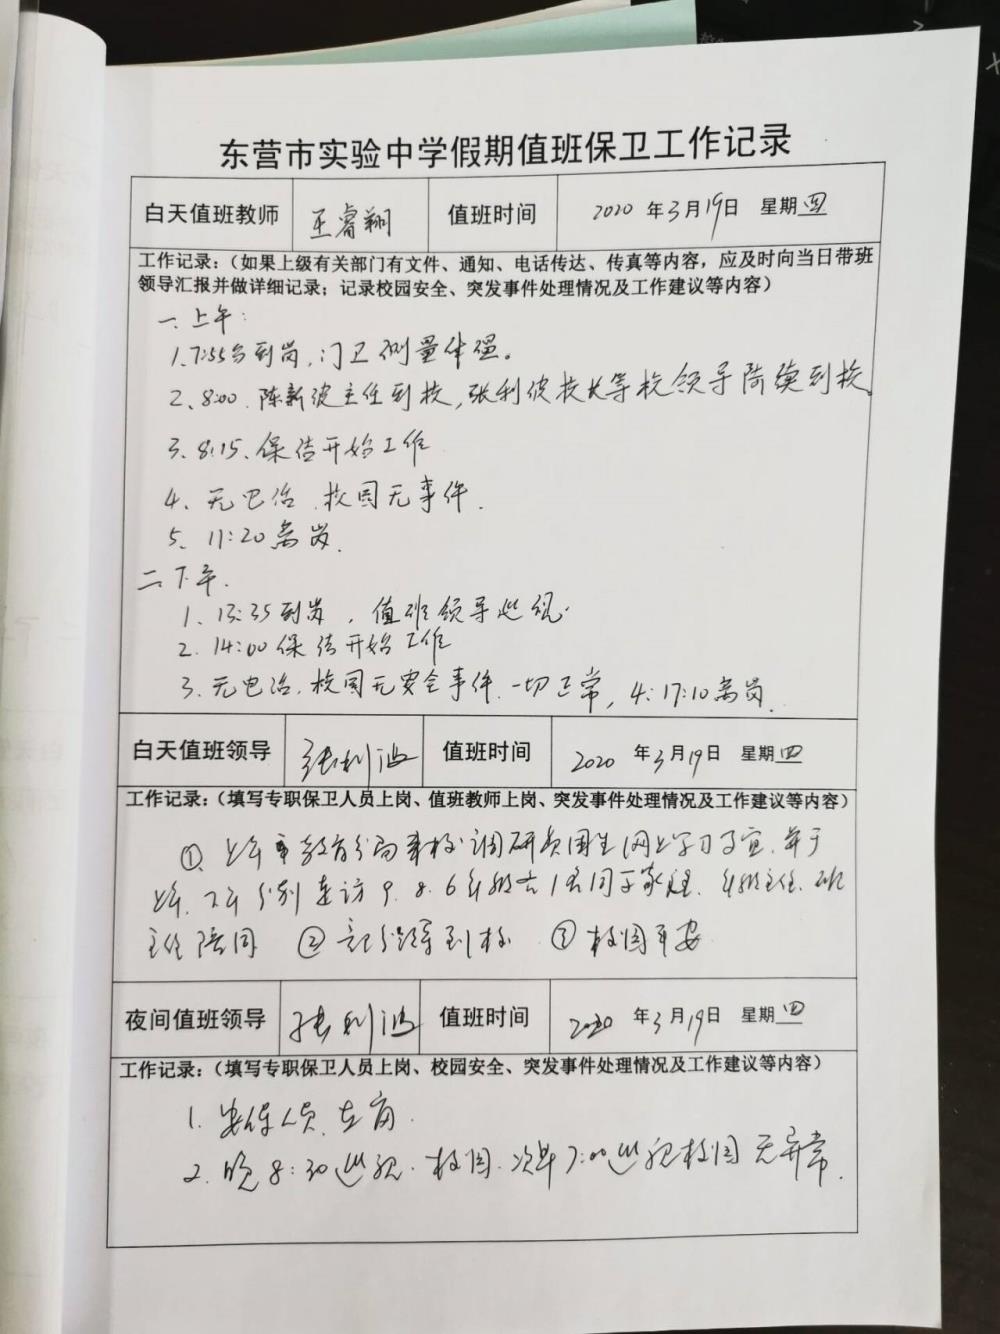 东营市实验中学假期值班保卫工作记录
白天值班教师 王睿翔 值班时间 2020 年 3 月 19 日 星期 四
工作记录:(如果上级有关部门有文件、通知、电话传达、传真等内容，应及时向当日带班
领导汇报并做详细记录；记录校园安全、突发事件处理情况及工作建议等内容)
一、上午：
1、7:55分到岗，门卫测量体温。
2、8:00、陈新波主任到校，张利波校长等校领导陆续到校
3、8:15、保洁开始工作
4、无电话、校园无事件.
5、11:20离岗.
二、下午.
1、13:35到岗，值班领导巡视.
2.14:00保洁开始工作
3、无电话，校园无安全事件.一切正常，4.17:10离岗.
白天值班领导 张利波 值班时间 2020 年 3 月 19 日 星期 四
工作记录:(填写专职保卫人员上岗、值班教师上岗、突发事件处理情况及工作建议等内容)
①上午 教育 局来校调研 生网上学习事宜.
上午、下午分别 访 9、8、6年级 同学家 、年级主任、班
主任陪同 ② 到校 ③校园平安
夜间值班领导 张利波 值班时间 2020 年 3 月 19 日 星期 四
工作记录:(填写专职保卫人员上岗、校园安全、突发事件处理情况及工作建议等内容)
1. 安保人员在岗.
2. 晚8:30巡视校园.次早7:00巡视校园无异常.